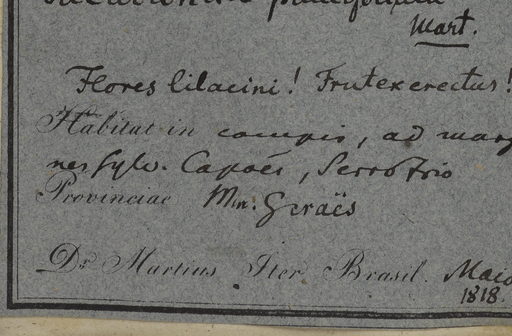 Mart.
Flores lilacini! Frutex erectus!
Habitat in campis, ad marg
nes sylv. Capoës, Serro frio
Provinciae Min: Geraës
Dr. Martius Iter Brasil. Maio
1818.